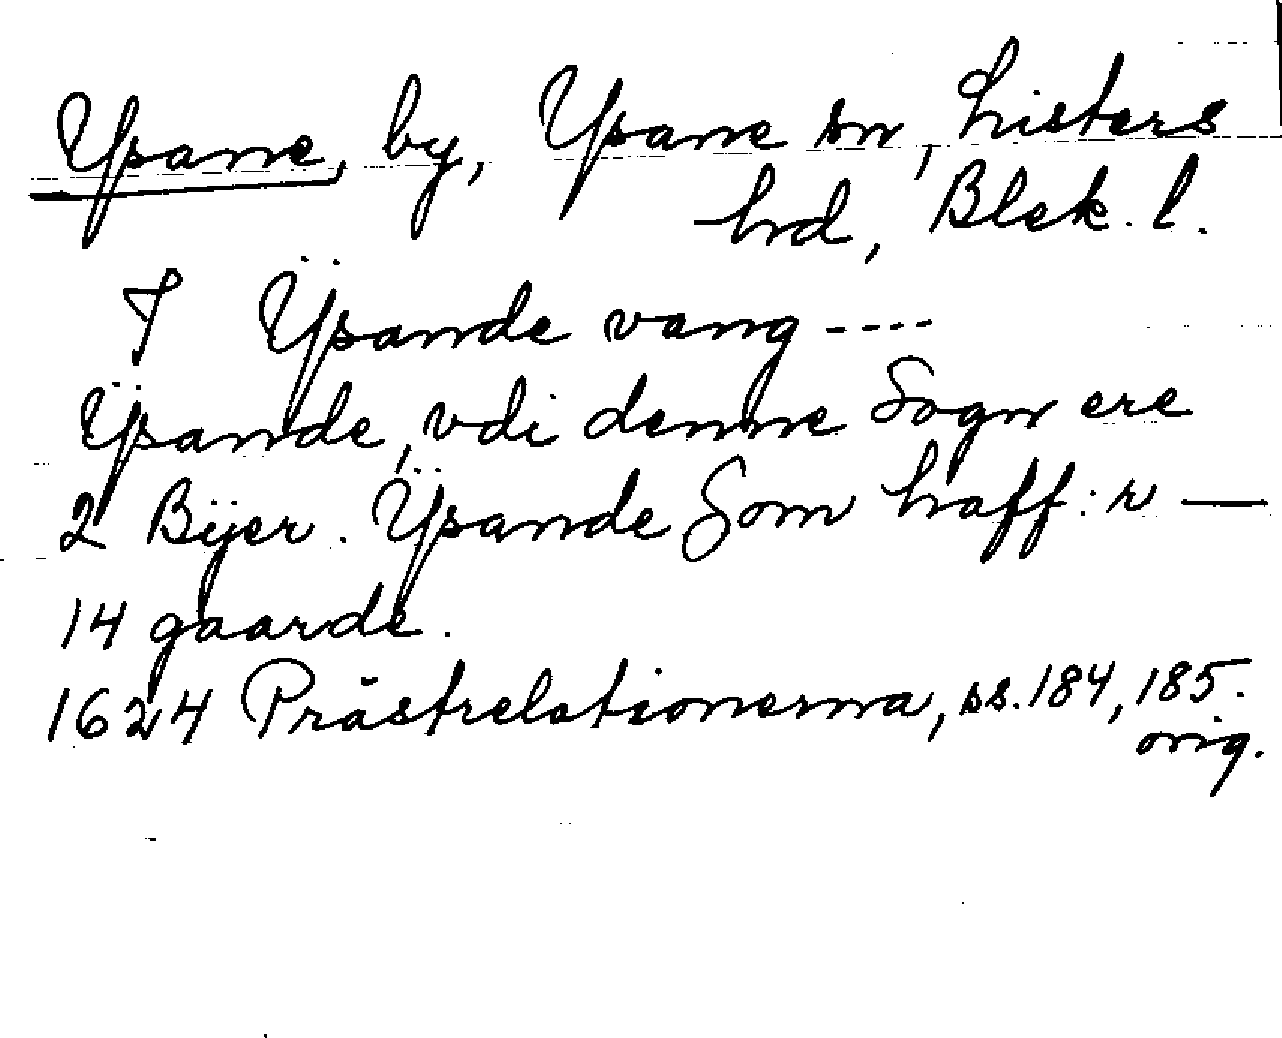 Ysane, by, Ysane sn, Listers
hd, Blek. l.
I Ÿsande vang ----
Ÿsande, vdi denne Sogn ere
2 Bÿer. Ÿsande Som haff:r —
14 gaarde.
1624 Prästrelationerna, ss. 184, 185.
orig.